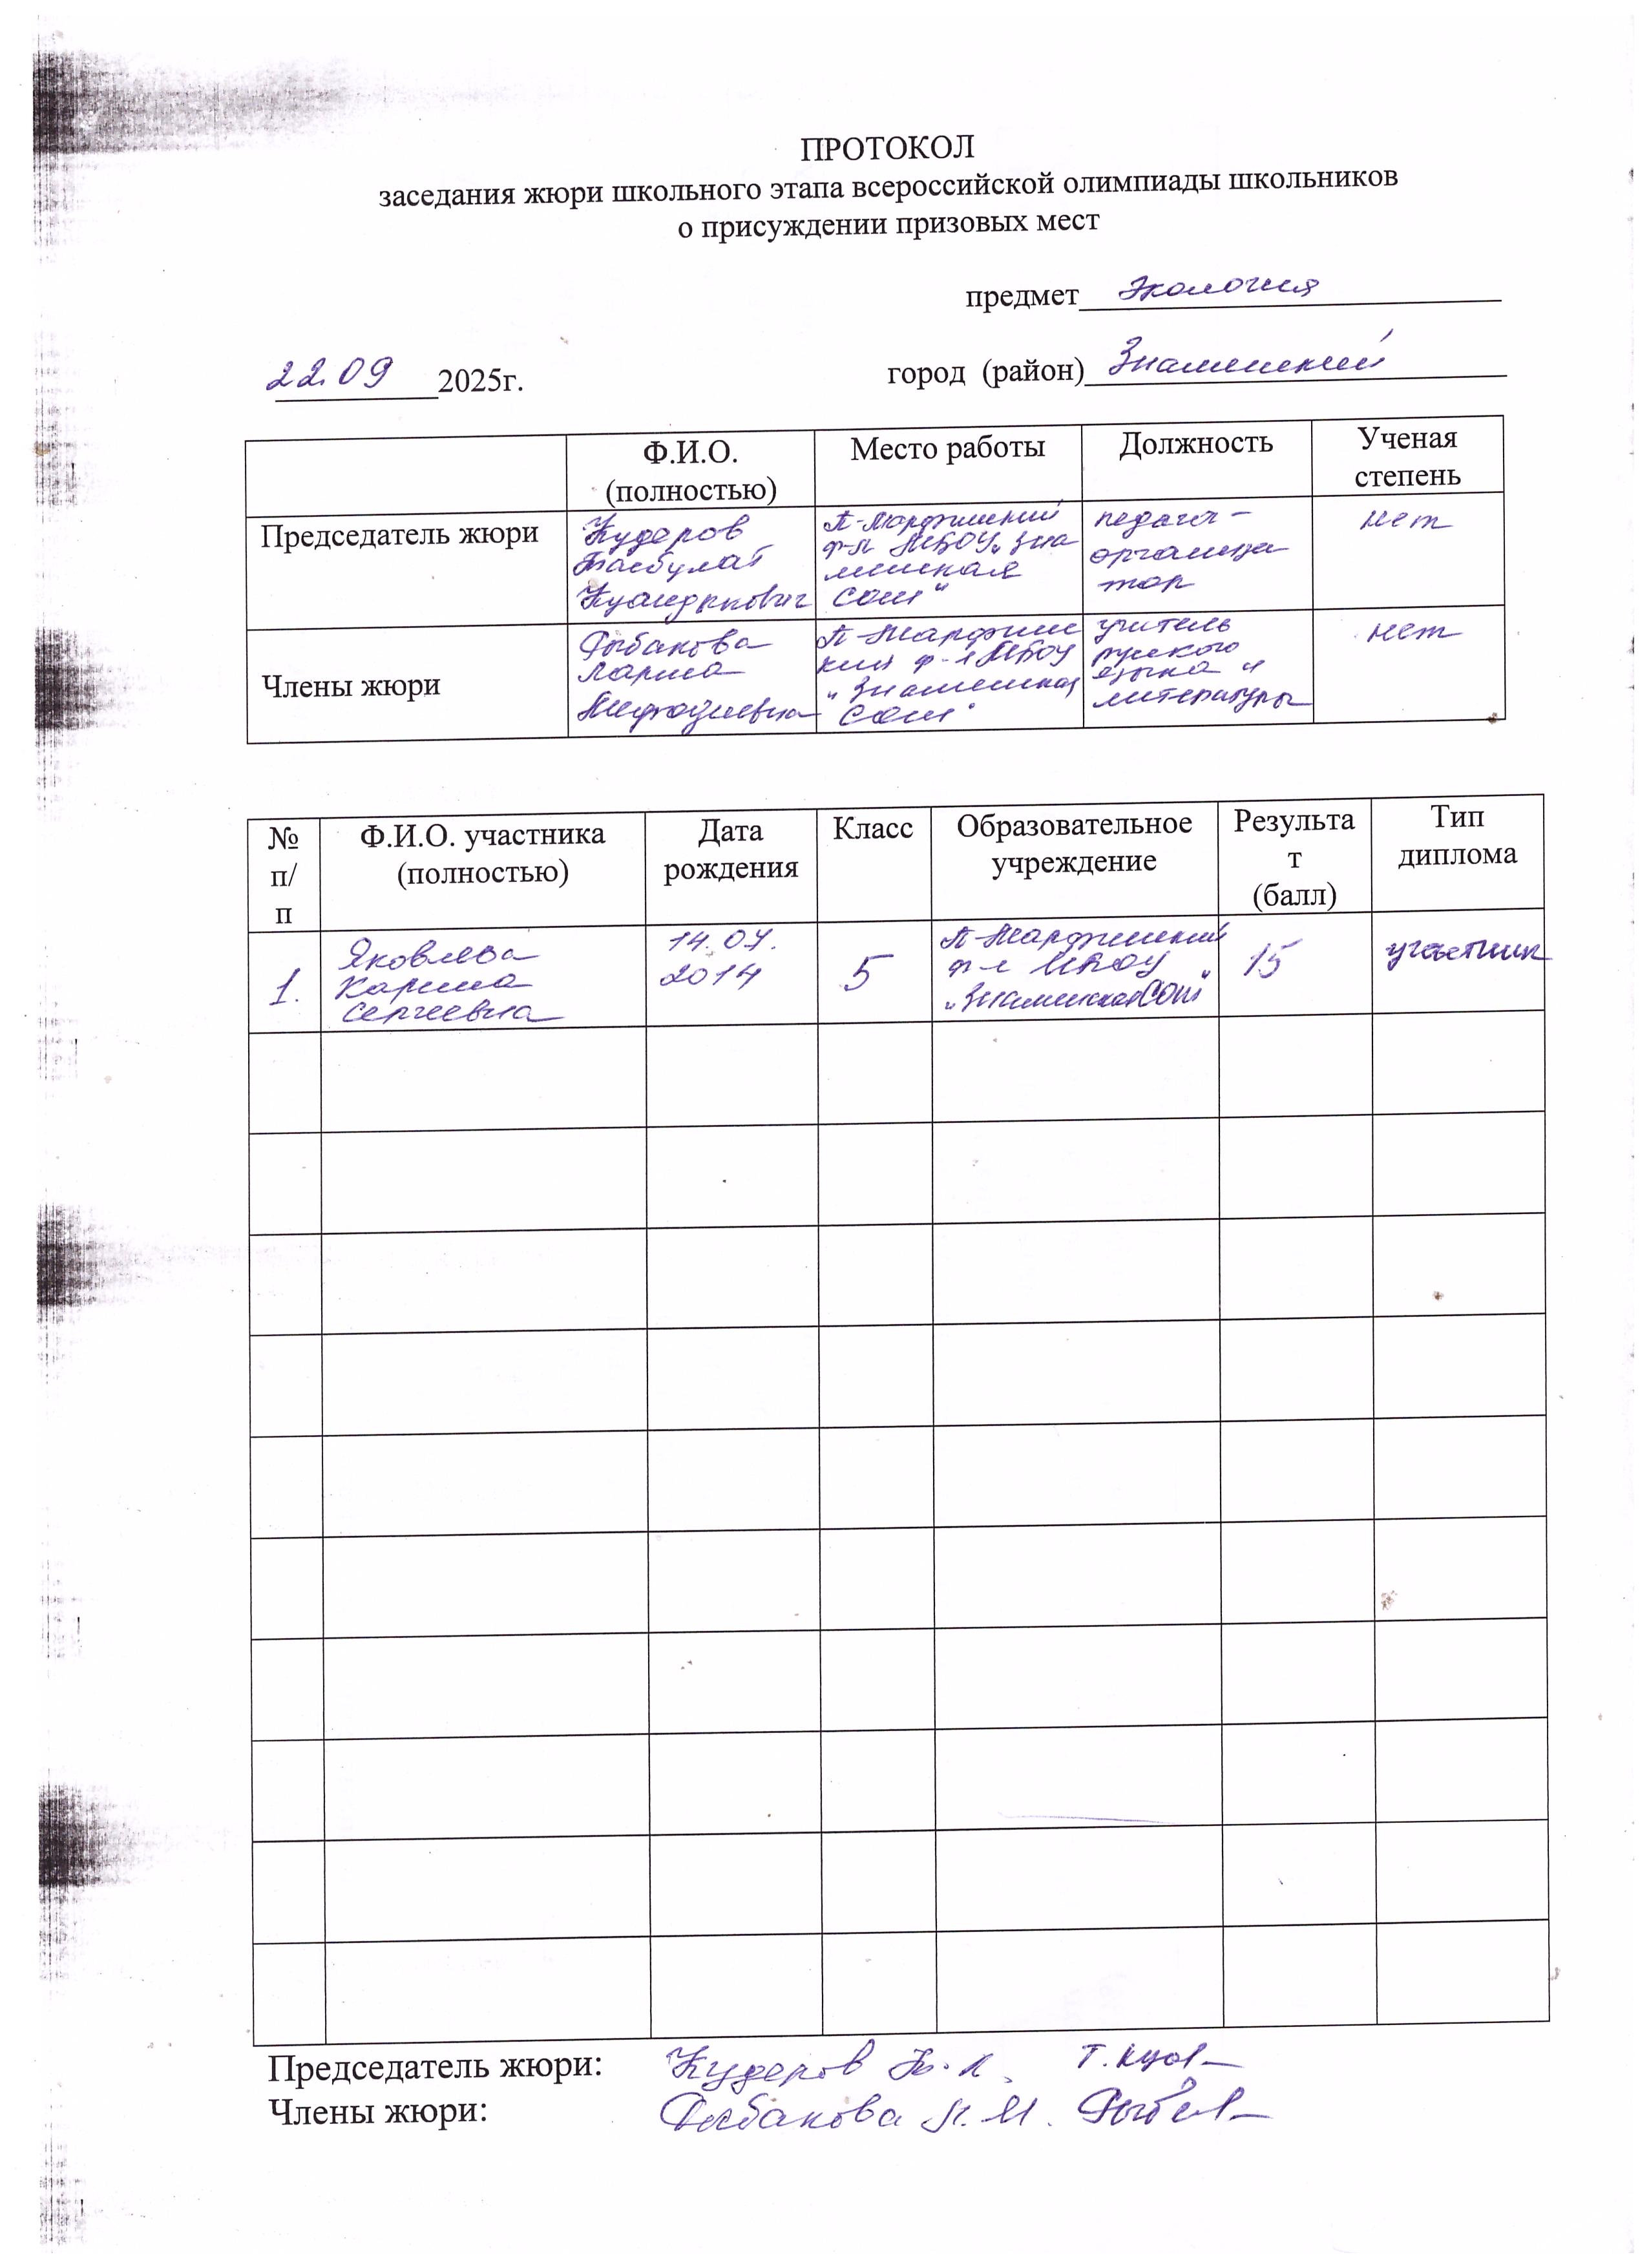 ПРОТОКОЛ
заседания жюри школьного этапа всероссийской олимпиады школьников
о присуждении призовых мест
предмет Экология
22.09 2025г.
город (район) Знаменский
Ф.И.О. (полностью)
Место работы
Должность
Ученая степень
Председатель жюри
Кудеров
Тасбулат
П-Марфинский
ф-л МБОУ „Зна
менская
СОШ"
педагог-
организа
тор
нет
Члены жюри
Рыбакова
Лариса
Мефодиевна
П-Марфинс
кий ф-л МБОУ
"Знаменская
СОШ"
учитель
русского
языка и
литературы
нет
№ п/п
Ф.И.О. участника (полностью)
Дата рождения
Класс
Образовательное учреждение
Результат (балл)
Тип диплома
1.
Яковлева
Карина
Сергеевна
14.04.
2014
5
П-Марфинский
ф-л МБОУ
„Знаменская СОШ"
15
участник
Председатель жюри: Кудеров Т.К.
Члены жюри: Рыбакова Л.М.